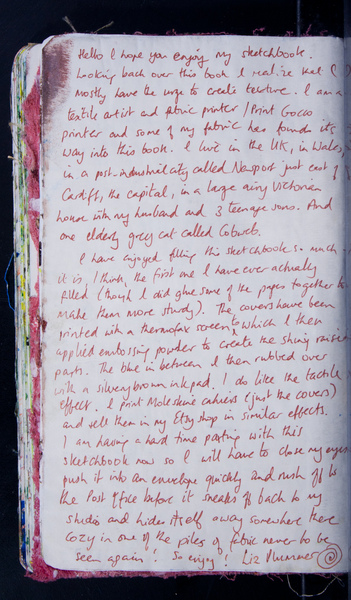 Hello I hope you enjoy my sketchbook.
Looking back over this book I realize that I
mostly have the urge to create texture. I am a
textile artist and fabric printer / Print Gocco
printer and some of my fabric has found its
way into this book. I live in the UK, in Wales,
in a post-industrial city called Newport just east of
Cardiff, the capital, in a large airy Victorian
house with my husband and 3 teenage sons. And
one elderly grey cat called Cobweb.
I have enjoyed filling this sketchbook so much -
it is, I think, the first one I have ever actually
filled (though I did glue some of the paper together to
make them more sturdy). The covers have been
printed with a thermofax screen which I then
applied embossing powder to create the shiny raised
parts. The blue in between I then rubbed over
with a silvery brown inkpad. I do like the tactile
effect. I print Moleskine cahiers (just the covers)
and sell them in my Etsy shop in similar effects.
I am having a hard time parting with this
sketchbook now so I will have to close my eyes
push it into an envelope quickly and rush off to
the Post Office before it sneaks off back to my
studio and hides itself away somewhere there
cozy in one of the piles of fabric never to be
seen again! So enjoy! Liz Plummer